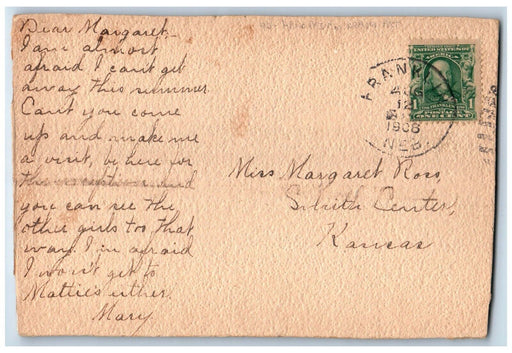 Dear Margaret,
I am almost
afraid I can't get
away this summer.
Can't you come
up and make me
a visit, be here for
the and
you can see the
other girls too that
way. I'm afraid
I won't get to
Mattie's either.
Mary
FRANKLIN
AUG
12
1908
NEB.
UNITED STATES OF AMERICA
FRANKLIN
POSTAGE
1 ONE CENT 1
Miss Margaret Ross,
Smith Center,
Kansas